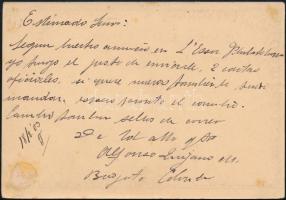 Estimado Señor:
Segun vuestro anuncio en L'Esson Philatelico
yo tengo el justo de enviarle, 2 cartas
oficiales, si quere nuevos tambien le puedo
mandar, espero pronto el cambio
Cambio tambien sellos de correo
De Vd atto y SS
Alfonso Quijano M.
Bogota Colombia